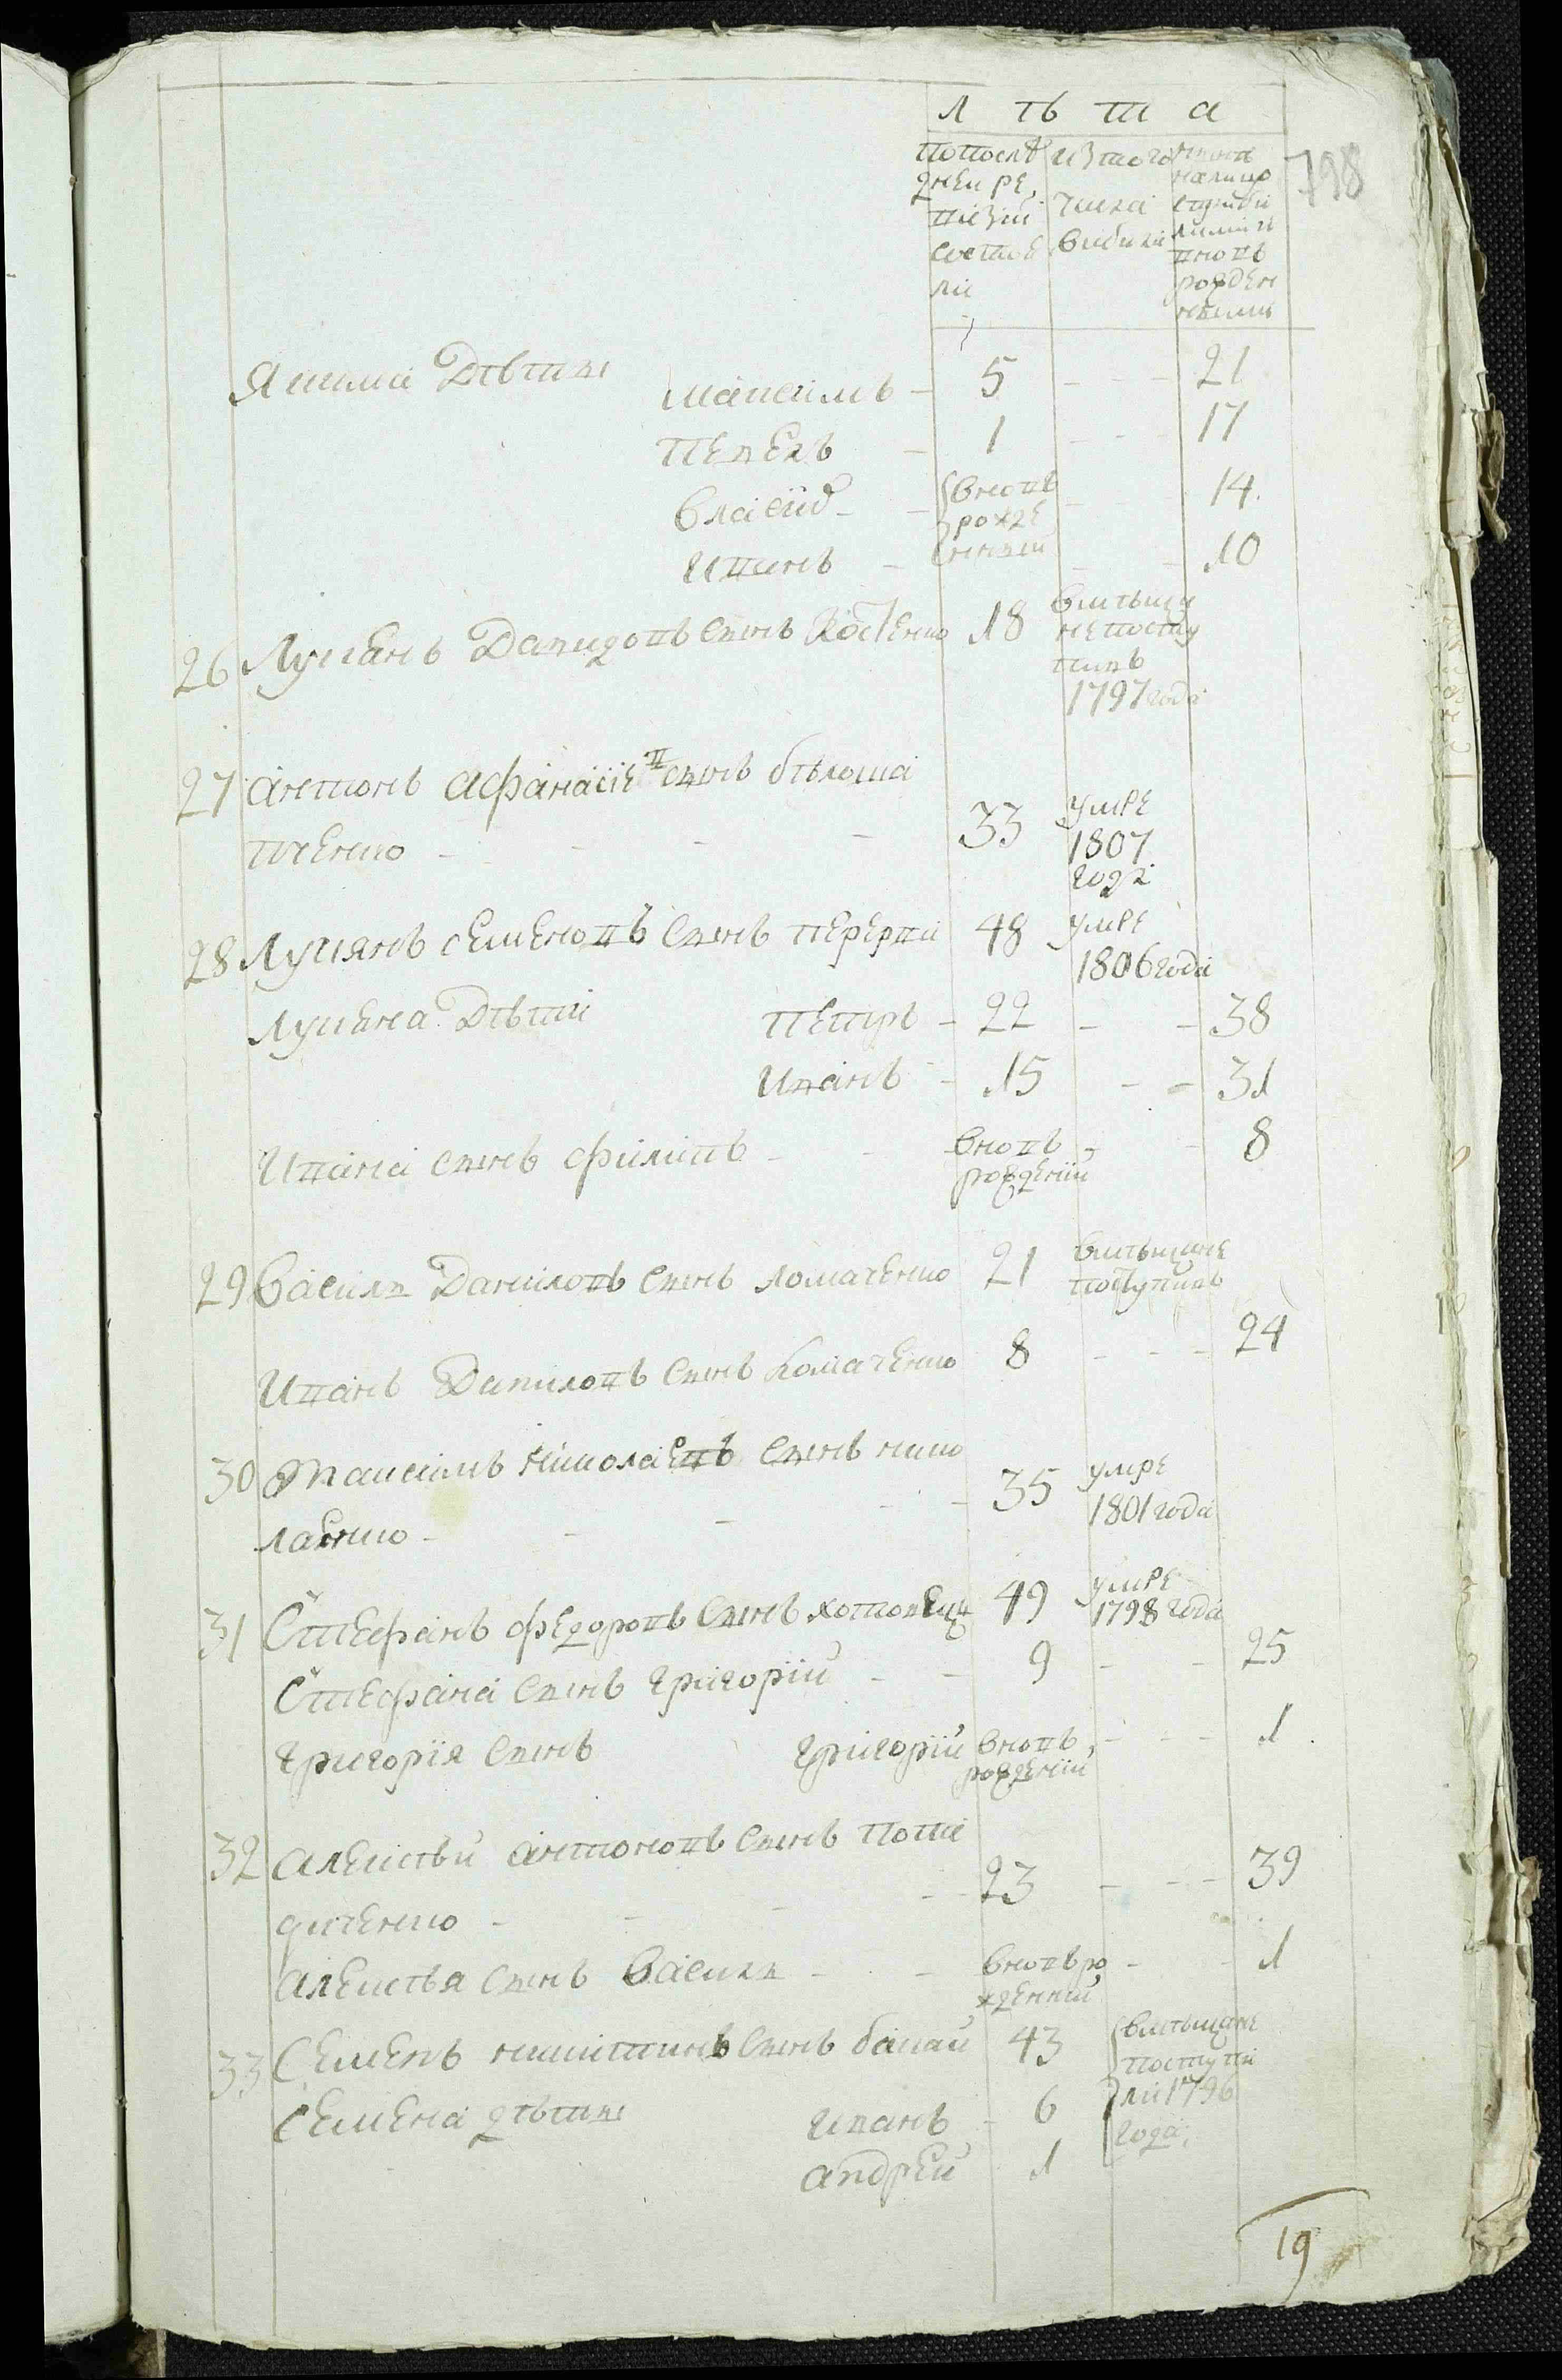 Л ѣ т а
798
попослѣ изтого
дней ре числа
визіи вибили
состоя
ли
ново
рожден
ними
Якима Дѣти
Максимъ - 5 - - 21
1 - - 17
Власий - внovь - 14
рожде
нний
Иванъ - - - 10
26 Лукянъ Давидовъ синъ Костенко 18 вмѣщи
непосту
пилъ
1797 года
27 антонъ афанасіевъ синъ бѣлоша
пченко - - - - 33 умре
1807
года
28 Лукянъ семеновъ синъ перерва 48 умре
1806 года
Лукяна Дѣти Петръ - 22 - - 38
Иванъ - 15 - - 31
Ивана синъ филипъ - - вновь - - 8
рожденій
29 Василь Даниловъ синъ ломаченко 21 вмѣщане
поступилъ
Иванъ Даниловъ синъ ломаченко 8 - - - 24
30 Максимъ Николаевъ синъ нико
лаенко - - - - 35 умре
1801 года
31 Стефанъ федоровъ синъ 49 умре
1798 года
Стефана синъ григорій - - 9 - - 25
григорія синъ григорій вновь - - - 1
рожденій
32 алексѣй антоновъ синъ пова
дченко - - - - 23 - - - 39
алексѣя синъ Василь - - вновьро - - 1
жденний
33 Семенъ никитинъ синъ бакай 43 вмѣщане
поступи
ли 1796
года
Семена дѣти Иванъ - 6
андрей 1
19